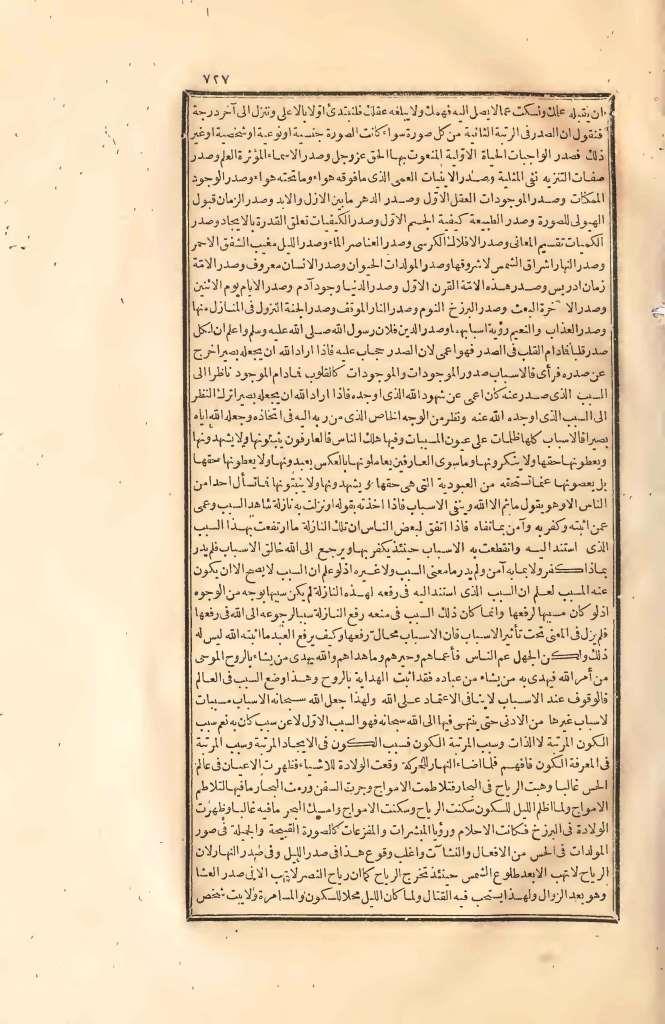 ٧٢٧
ان يقبله علمك ونسكت عما لا يصل اليه فهمك ولا يبلغه عقلك فلنبتدئ اولا بالاعلى وننزل الى آخر درجة
فنقول ان الصدر فى الرتبة الثانية من كل صورة سواء كانت الصورة جنسية او نوعية او شخصية او غير
ذلك فصدر الواجبات الحياة الازلية المنعوت بها الحق عز وجل وصدر الاسماء المؤثرة العلم وصدر
صفات التنزيه نفى المثلية وصدر الاينيات العمى الذى ما فوقه هواء وما تحته هواء وصدر الوجود
الممكنات وصدر الموجودات العقل الاول وصدر الدهر ما بين الازل والابد وصدر الزمان قبول
الهيولى للصورة وصدر الطبيعة كيفية الجسم الاول وصدر الكيفيات تعلق القدرة بالايجاد وصدر
الكميات تقسيم المعانى وصدر الافلاك الكرسى وصدر العناصر الماء وصدر الليل مغيب الشفق الاحمر
وصدر النهار اشراق الشمس لا شروقها وصدر المولدات الحيوان وصدر الانسان معروف وصدر الامة
زمان ادريس وصدر هذه الامة القرن الاول وصدر الدنيا وجود آدم وصدر الايام يوم الاثنين
وصدر الآخرة البعث وصدر البرزخ النوم وصدر النار الموقف وصدر الجنة النزول فى المنازل منها
وصدر العذاب والنعيم رؤية اسبابهما وصدر الدين فلان رسول الله صلى الله عليه وسلم واعلم ان لكل
صدر قلبا فمادام القلب فى الصدر فهو اعمى لان الصدر حجاب عليه فاذا اراد الله ان يجعله بصيرا خرج
عن صدره فرأى فالاسباب صدور الموجودات والموجودات كالقلوب فمادام الموجود ناظرا الى
السبب الذى صدر عنه كان اعمى عن شهود الله الذى اوجده فاذا اراد الله ان يجعله بصيرا ترك النظر
الى السبب الذى اوجده الله عنده ونظر من الوجه الخاص الذى من ربه اليه فى ايجاده وجعله الله اياه
بصيرا فالاسباب كلها ظلمات على عيون المسببات وفيها هلك الناس فالعارفون يثبتونها ولا يشهدونها
ويعطونها حقها ولا ينكرونها وما سوى العارفين يعاملونها بالعكس يعبدونها ولا يعطونها حقها
بل يعصونها عما تستحقه من العبودية التى هى حقها ويشهدونها ولا يثبتونها فما تسأل احدا من
الناس الا وهو يقول ما ثم الا الله وينفى الاسباب فاذا اخذته بقوله او نزلت به نازلة شاهد السبب وعمى
عمن اثبته وكفر به وآمن بما نفاه فاذا اتفق لبعض الناس ان تلك النازلة ما ارتفعت بهذا السبب
الذى استند اليه وانقطعت به الاسباب حينئذ يكفر بها ويرجع الى الله خالق الاسباب فلم يدر
بماذا كفر ولا بما به آمن ولم يدر ما معنى السبب ولا غيره اذ لو علم ان السبب لا يصح الا ان يكون
عنه المسبب لعلم ان السبب الذى استند اليه فى رفعه لهذه النازلة لم يكن سببها بوجه من الوجوه
اذ لو كان مسببها لرفعها وانما كان ذلك السبب فى منعه رفع النازلة سببا لرجوعه الى الله فى رفعها
فلم يزل فى المعنى تحت تأثير الاسباب فان الاسباب محال رفعها وكيف يرفع العبد ما اثبته الله ليس له
ذلك ولكن الجهل عم الناس فأعماهم وحيرهم وما هداهم والله يهدى من يشاء بالروح الموحى
من أمر الله فيهدى به من يشاء من عباده فقد اثبت الهداية بالروح وهذا وضع السبب فى العالم
فالوقوف عند الاسباب لا ينافى الاعتماد على الله ولهذا جعل الله سبحانه الاسباب مسببات
لاسباب غيرها من الادنى حتى ينتهى فيها الى الله سبحانه فهو السبب الاول لا عن سبب كان به نعم سبب
الكون المرتبة لا الذات وسبب المرتبة الكون فسبب الكون فى الايجاد المرتبة وسبب المرتبة
فى المعرفة الكون فافهم فلما اضاء النهار للحركة وقعت الولادة للاشياء فظهرت الاعيان فى عالم
الحس غالبا وهبت الرياح فى البحار فتلاطمت الامواج وجرت السفن ورمت البحار ما فيها لتلاطم
الامواج ولما اظلم الليل للسكون سكنت الرياح وسكنت الامواج وامسك البحر ما فيه غالبا وظهرت
الولادة فى البرزخ فكانت الاحلام ورؤيا المبشرات والمفزعات كالصورة القبيحة والجميلة فى صور
المولدات فى الحس من الافعال والنشآت واغلب وقوع هذا فى صدر الليل وفى صدر النهار لان
الرياح لا تهب الا بعد طلوع الشمس حينئذ تتخرج الرياح كما ان رياح النصر لا تهب الا فى صدر العشا
وهو بعد الزوال ولهذا يستحب فيه القتال ولما كان الليل محلا للسكون والمسامرة ولا يبت شخص